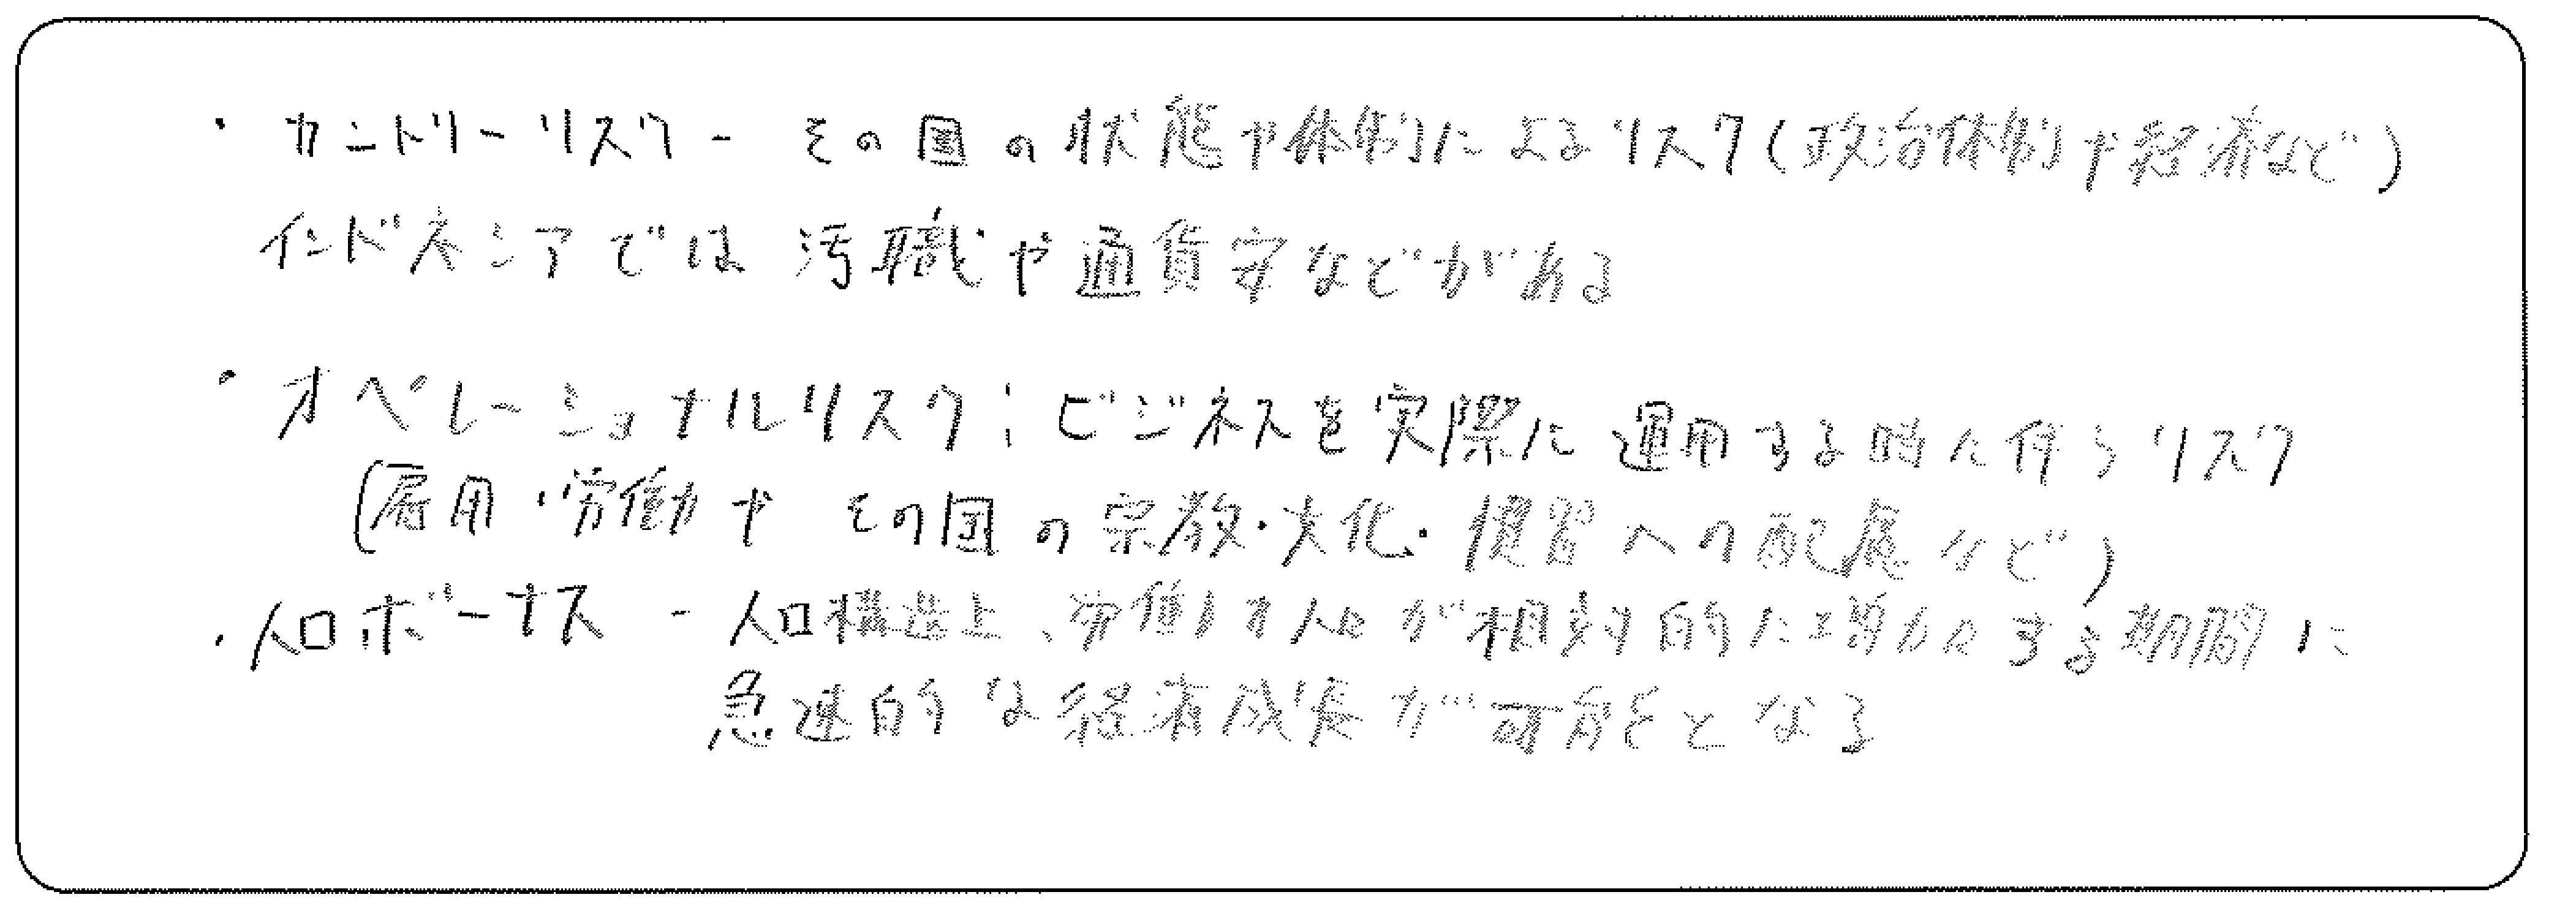 ・カントリーリスク - その国の状態や体制によるリスク(政治体制や経済など)
インドネシアでは汚職や通貨安などがある
・オペレーショナルリスク : ビジネスを実際に運用する時に伴うリスク
(雇用・労働力や その国の宗教・文化・慣習への配慮など)
・人口ボーナス - 人口構造上、労働力人口が相対的に増加する期間に
急速的な経済成長が可能となる